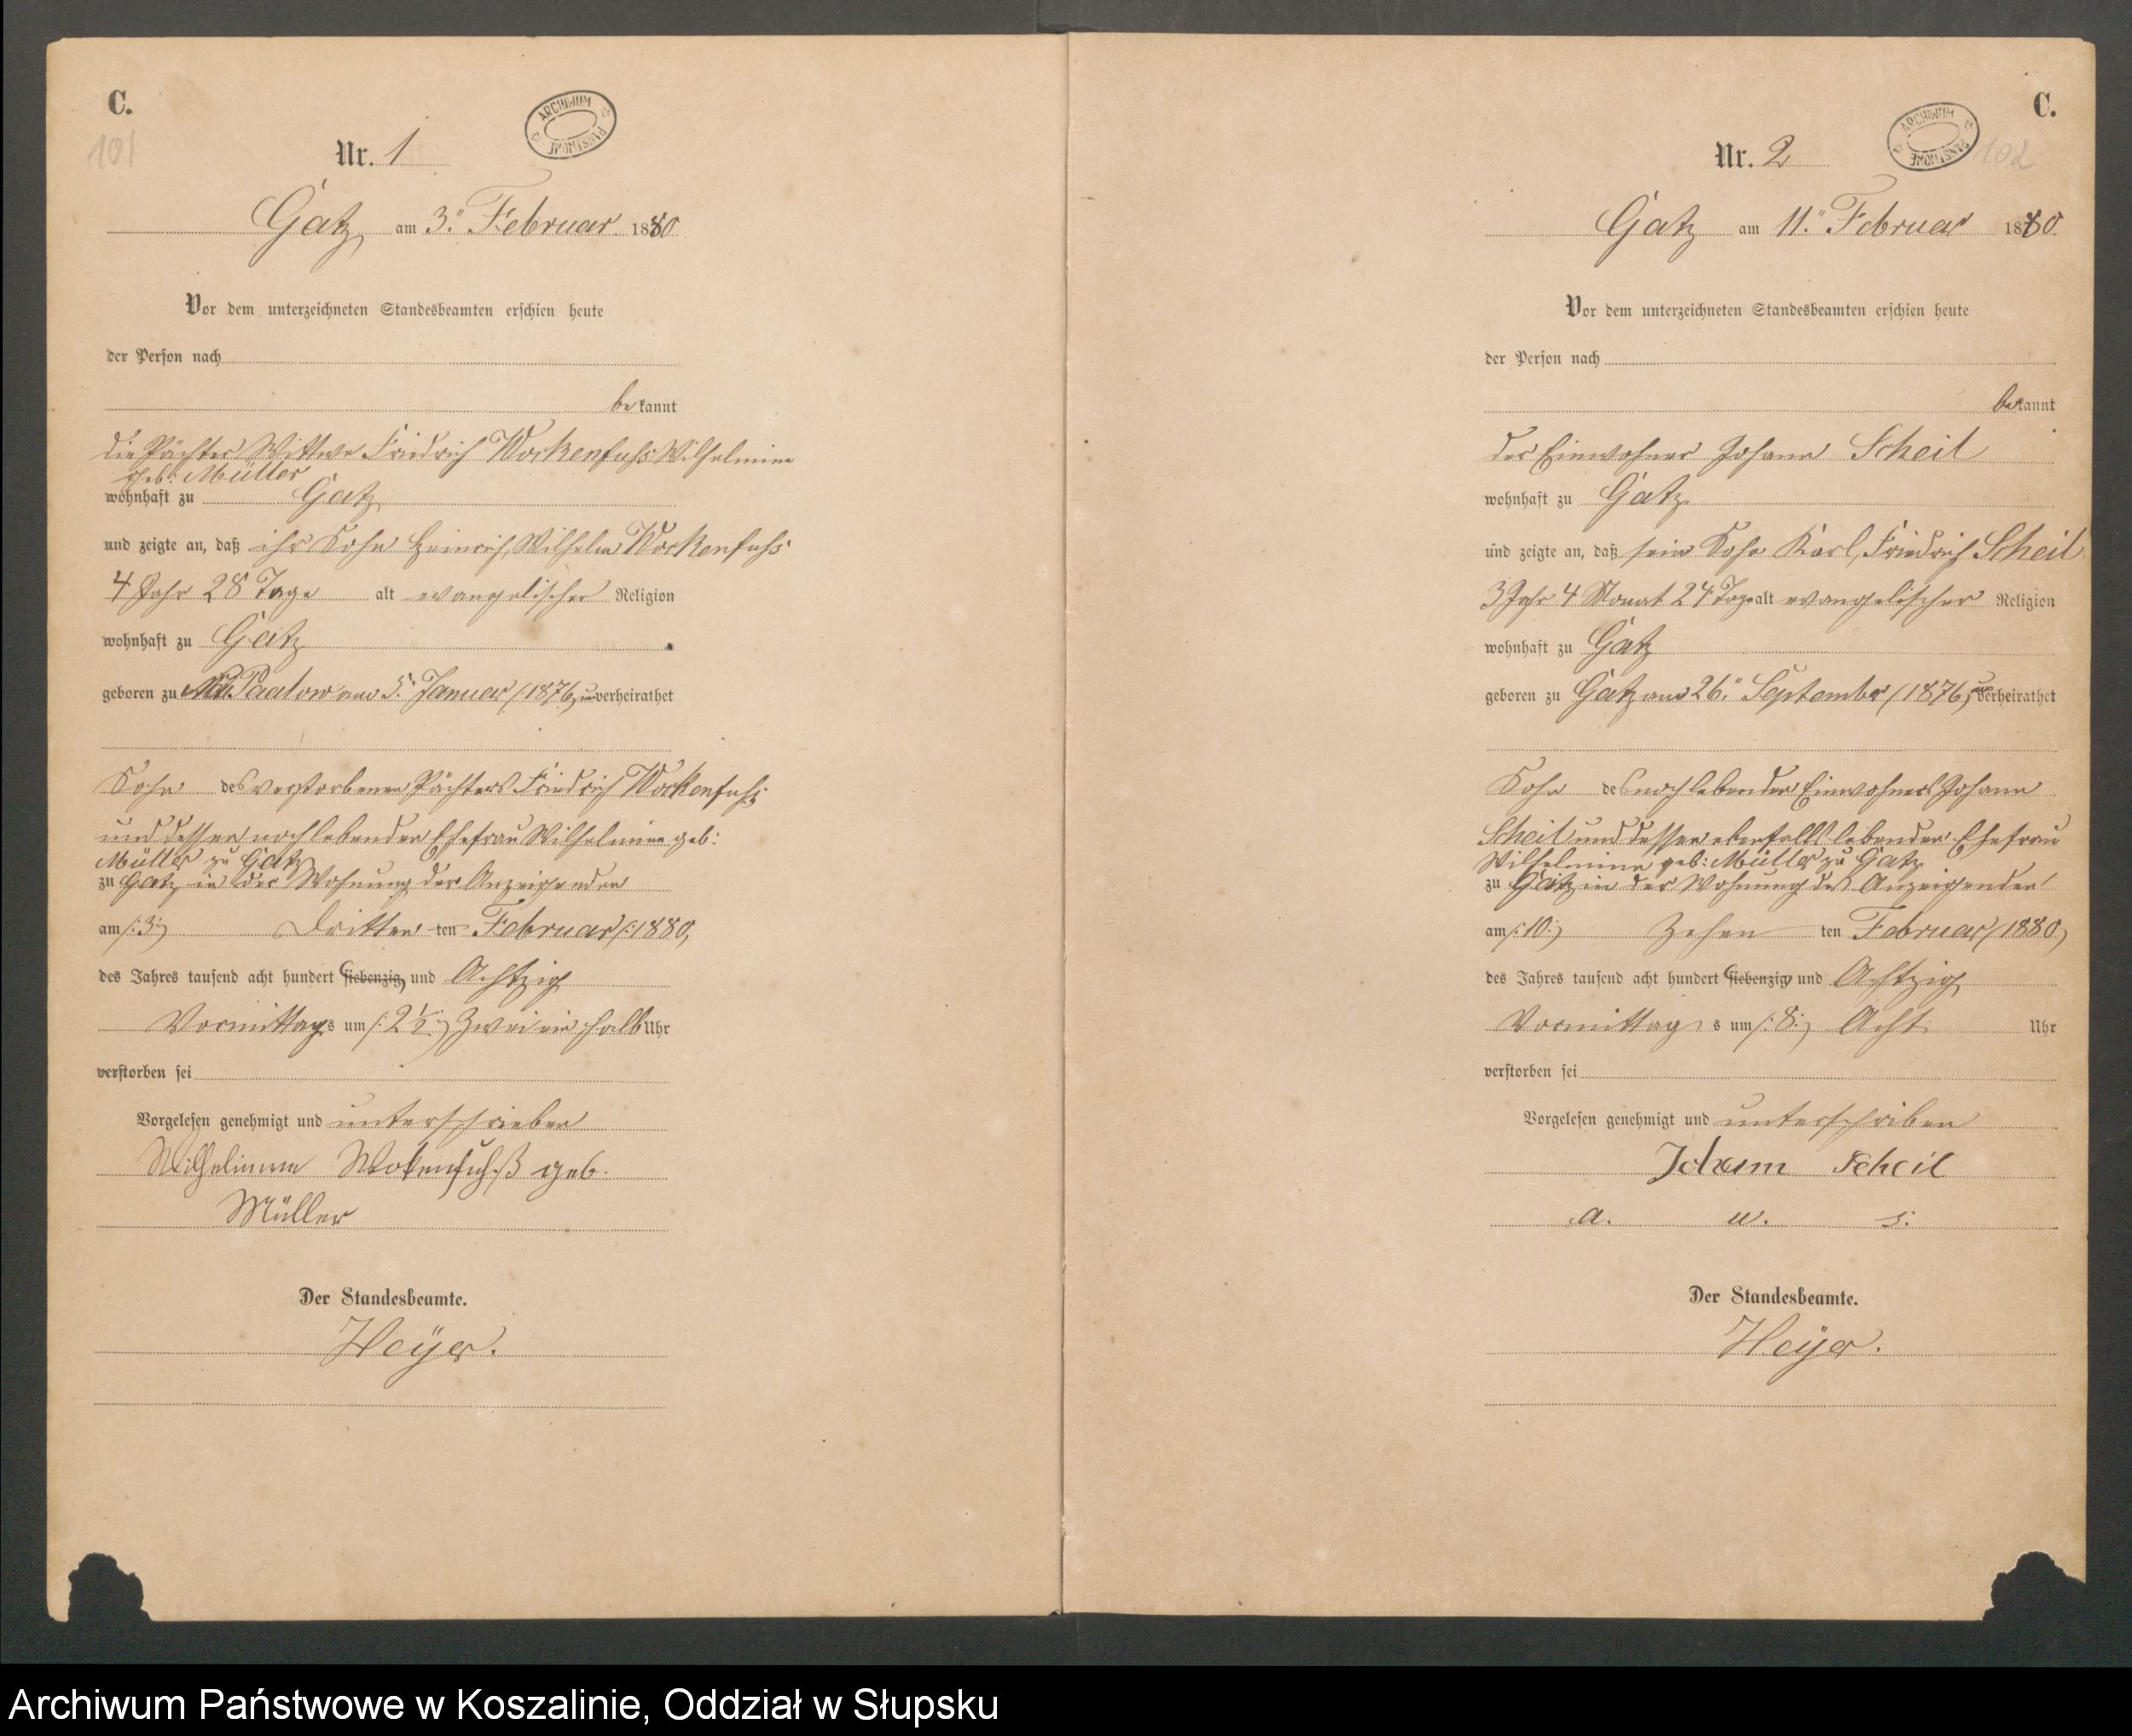 C.
101
ARCHIWUM PAŃSTWOWE
Nr. 1
Gatz, am 3." Februar 1880
Vor dem unterzeichneten Standesbeamten erschien heute
der Person nach
bekannt
die Pächter Wittwe Friedrich Wockenfuhs Wilhelmine
geb: Müller
wohnhaft zu Gatz
und zeigte an, daß ihr Sohn Heinrich, Wilhelm Wockenfuhs
4 Jahr 28 Tage alt evangelischer Religion
wohnhaft zu Gatz
geboren zu Paatow am 5." Januar (1876, unverheirathet
Sohn des verstorbenen Pächters Friedrich Wockenfuhs
und dessen noch lebenden Ehefrau Wilhelmine geb:
Müller zu Gatz
zu Gatz in der Wohnung der Anzeigenden
am /:3:/ Dritten ten Februar /:1880,
des Jahres tausend acht hundert siebenzig und Achtzig
Vormittags um /:2½:/ Zwei ein halb Uhr
verstorben sei
Vorgelesen genehmigt und unterschrieben
Wilhelmine Wokenfuhß geb.
Müller
Der Standesbeamte.
Heÿer.
C.
102
ARCHIWUM PAŃSTWOWE
Nr. 2
Gatz am 11." Februar 1880
Vor dem unterzeichneten Standesbeamten erschien heute
der Person nach
bekannt
der Einwohner Johann Scheil
wohnhaft zu Gatz
und zeigte an, daß sein Sohn Karl, Friedrich Scheil
3 Jahr 4 Monat 24 Tage alt evangelischer Religion
wohnhaft zu Gatz
geboren zu Gatz am 26." September (1876, unverheirathet
Sohn des noch lebenden Einwohners Johann
Scheil und dessen ebenfalls lebenden Ehefrau
Wilhelmine geb: Müller zu Gatz
zu Gatz in der Wohnung des Anzeigenden
am /:10:/ Zehen ten Februar (1880.)
des Jahres tausend acht hundert siebenzig und Achtzig
Vormittags um /:8:/ Acht Uhr
verstorben sei
Vorgelesen genehmigt und unterschriben
Johann Scheil
a. u. s.
Der Standesbeamte.
Heÿer.
Archiwum Państwowe w Koszalinie, Oddział w Słupsku